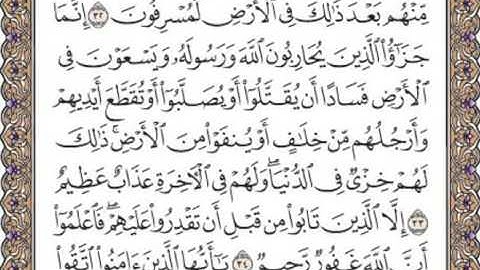 مِّنْهُم بَعْدَ ذَٰلِكَ فِي ٱلْأَرْضِ لَمُسْرِفُونَ ٣٢ إِنَّمَا
جَزَٰٓؤُا۟ ٱلَّذِينَ يُحَارِبُونَ ٱللَّهَ وَرَسُولَهُۥ وَيَسْعَوْنَ فِي
ٱلْأَرْضِ فَسَادًا أَن يُقَتَّلُوٓا۟ أَوْ يُصَلَّبُوٓا۟ أَوْ تُقَطَّعَ أَيْدِيهِمْ
وَأَرْجُلُهُم مِّنْ خِلَٰفٍ أَوْ يُنفَوْا۟ مِنَ ٱلْأَرْضِ ۚ ذَٰلِكَ
لَهُمْ خِزْىٌ فِي ٱلدُّنْيَا ۖ وَلَهُمْ فِي ٱلْـَٔاخِرَةِ عَذَابٌ عَظِيمٌ
٣٣ إِلَّا ٱلَّذِينَ تَابُوا۟ مِن قَبْلِ أَن تَقْدِرُوا۟ عَلَيْهِمْ ۖ فَٱعْلَمُوٓا۟
أَنَّ ٱللَّهَ غَفُورٌ رَّحِيمٌ ٣٤ يَٰٓأَيُّهَا ٱلَّذِينَ ءَامَنُوا۟ ٱتَّقُوا۟